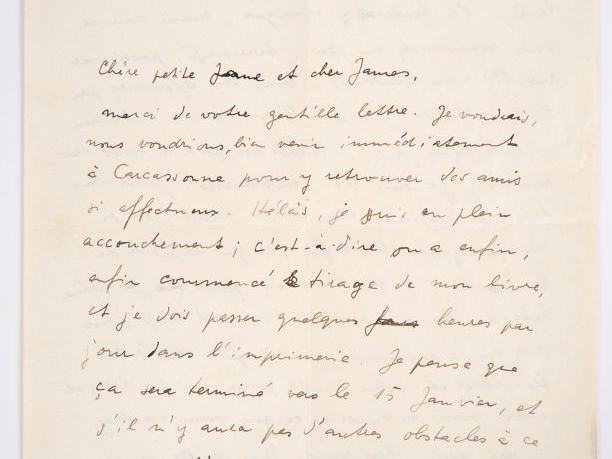 Chère petite Jane et cher James,
merci de votre gentille lettre. Je voudrais,
nous voudrions, bien venir immédiatement
à Carcassonne pour y retrouver des amis
si affectueux. Hélàs, je suis en plein
accouchement ; c'est-à-dire on a enfin,
enfin commencé le tirage de mon livre,
et je dois passer quelques jours heures par
jour dans l'imprimerie. Je pense que
ça sera terminé vers le 15 Janvier, et
s'il n'y aura pas d'autres obstacles à ce